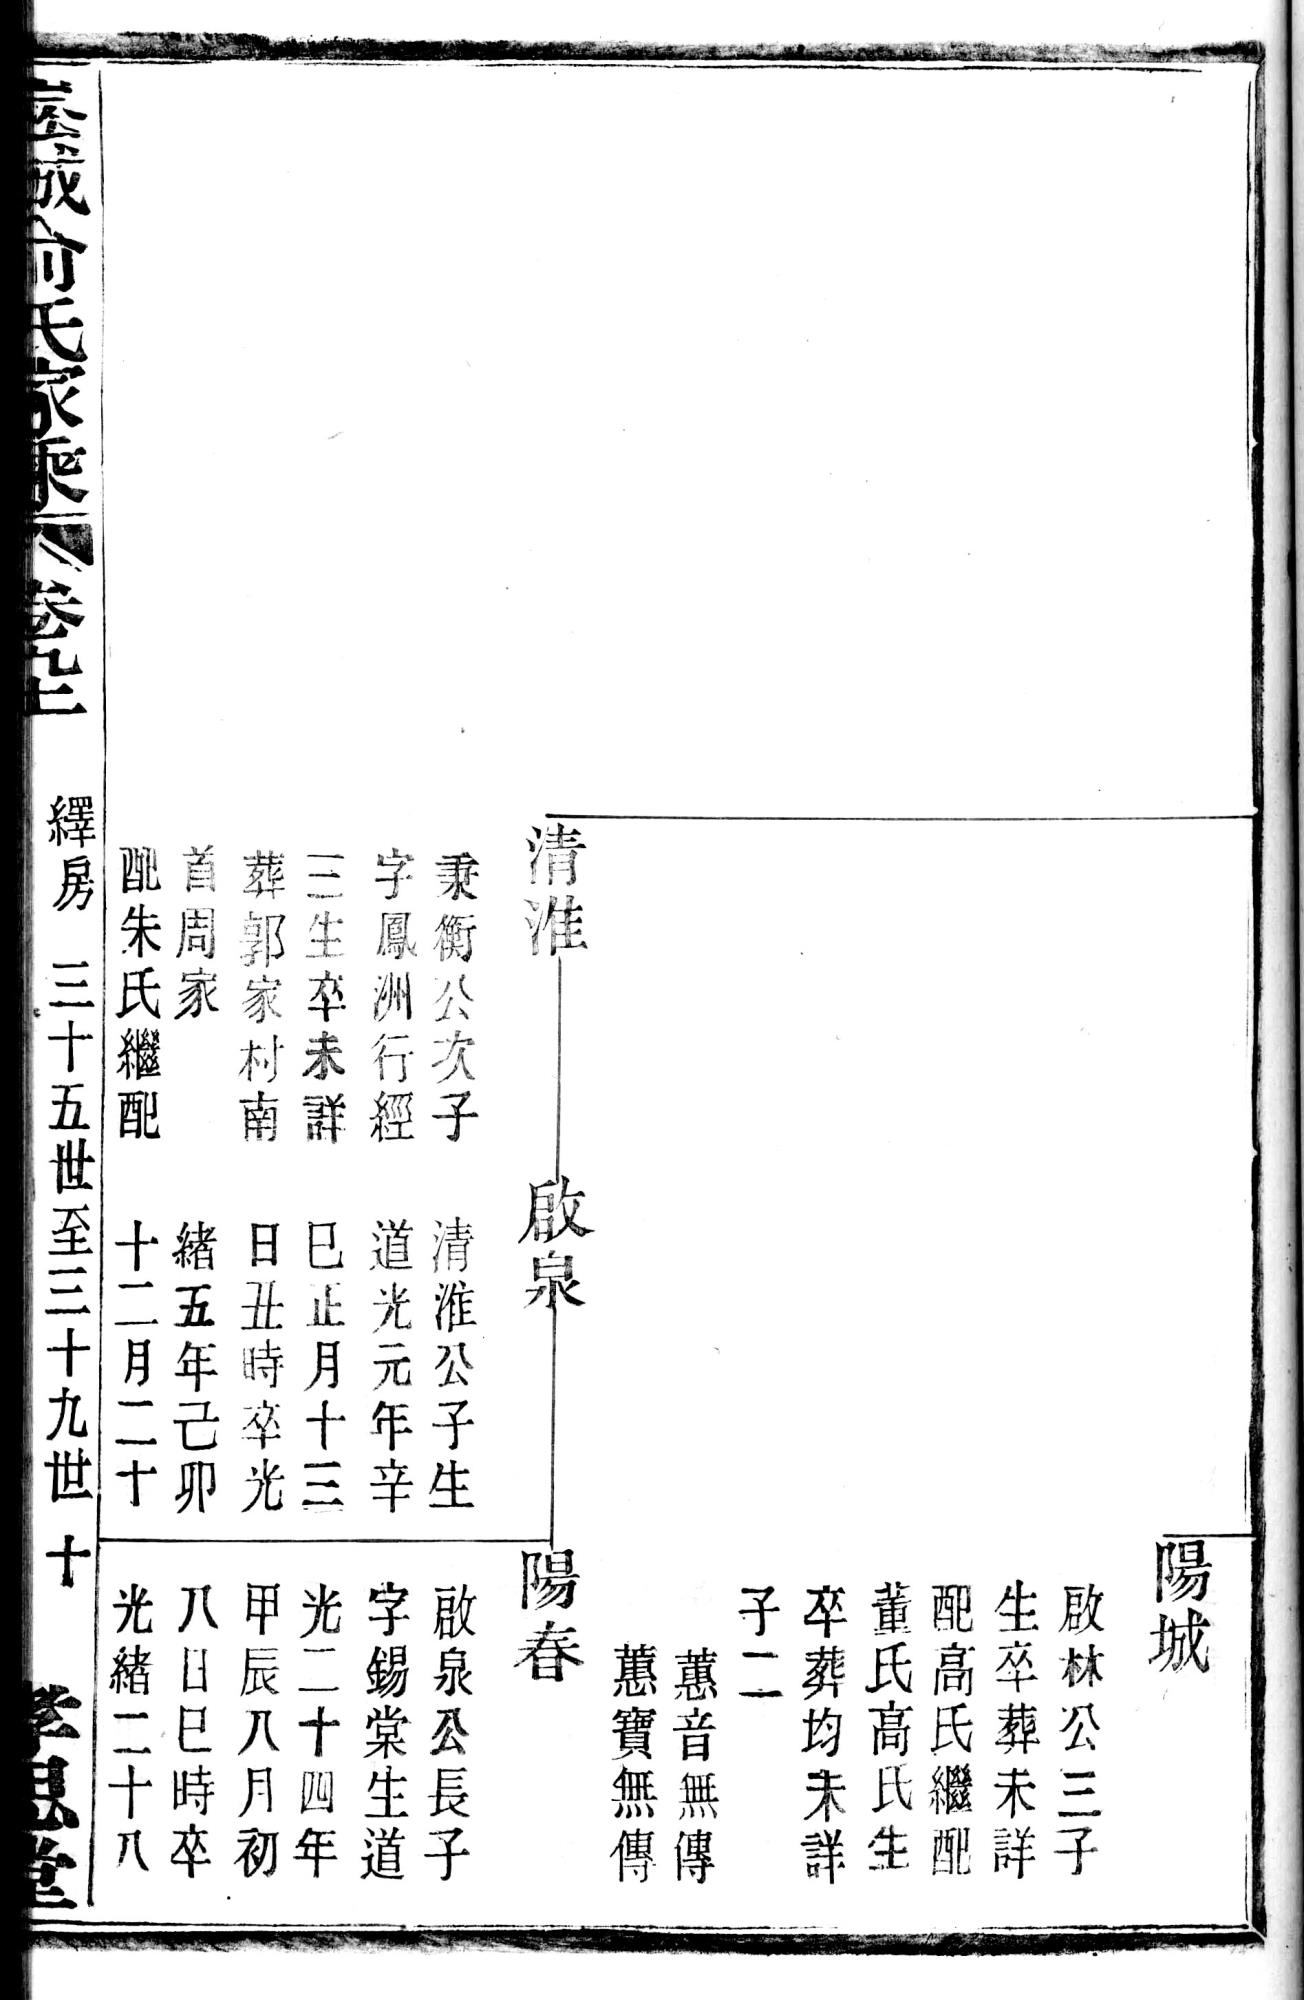 陽城
啟林公三子
生卒葬未詳
配高氏繼配
董氏高氏生
卒葬均未詳
子二
蕙音無傳
蕙寶無傳
清淮
秉衡公次子
字鳳洲行經
三生卒未詳
葬郭家村南
首周家
配朱氏繼配
啟泉
清淮公子生
道光元年辛
巳正月十三
日丑時卒光
緒五年己卯
十二月二十
陽春
啟泉公長子
字錫棠生道
光二十四年
甲辰八月初
八日巳時卒
光緒二十八
崧城俞氏家乘 卷九上
繹房 三十五世至三十九世 十
孝思堂